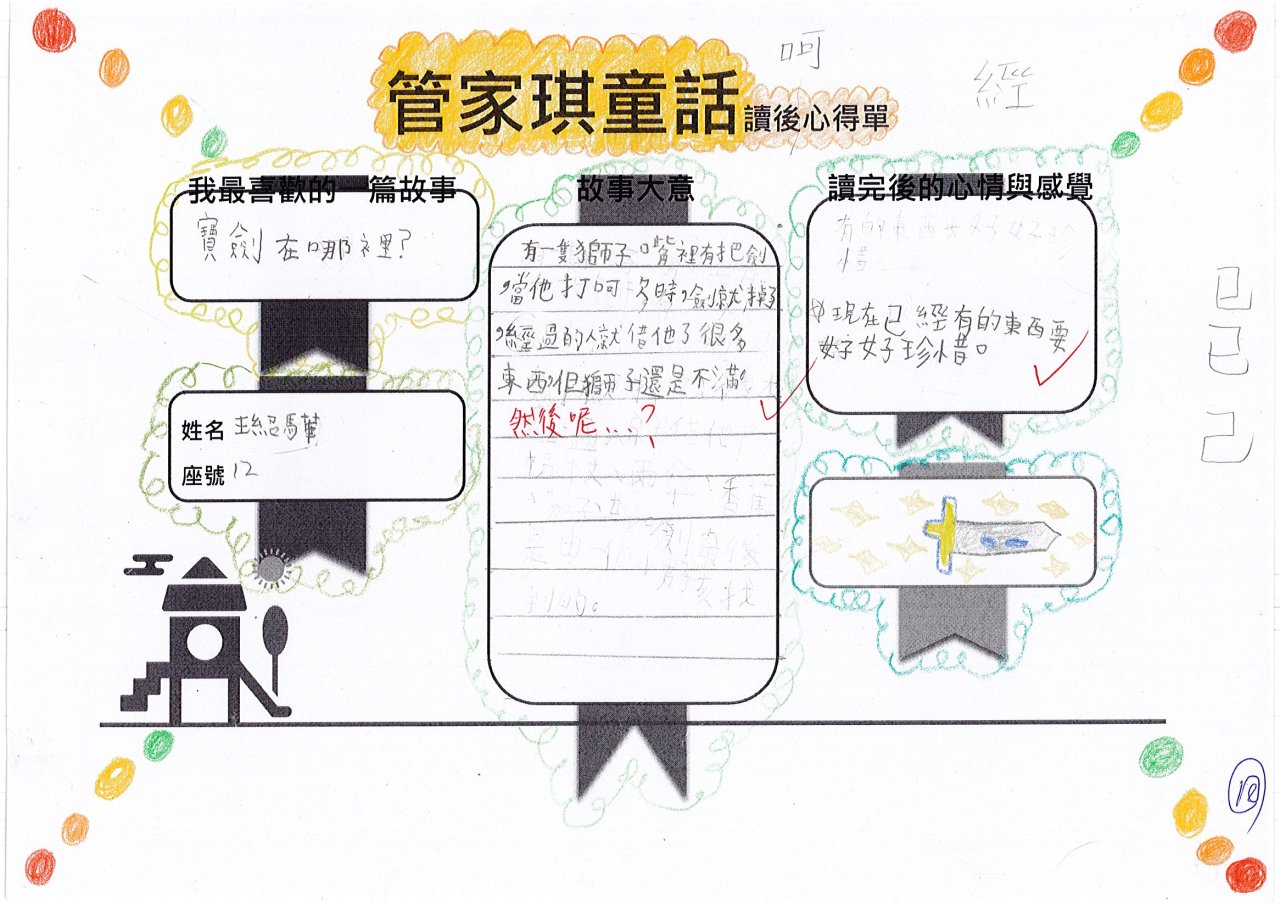 呵
經
管家琪童話讀後心得單
我最喜歡的一篇故事
寶劍在哪裡?
姓名
座號12
故事大意
有一隻獅子嘴裡有把劍
,當他打呵欠時,劍就掉了
,經過的人就借他了很多
東西,但獅子還是不滿。
然後呢...?
到的。
讀完後的心情與感覺
有的東西要好好珍
惜
現在已經有的東西要
好好珍惜。
已
已
己
12